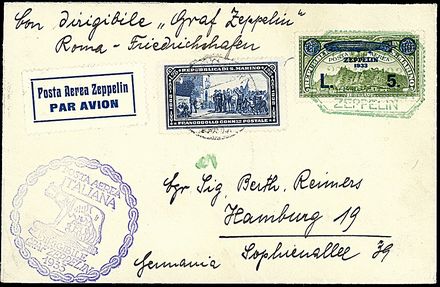 Con dirigibile „Graf Zeppelin"
Roma - Friedrichshafen
Posta Aerea Zeppelin
PAR AVION
REPUBBLICA DI S. MARINO
FRANCOBOLLO COMM. POSTALE
ZEPPELIN
1933
L. 5
ZEPPELIN
POSTA AEREA
ITALIANA
1933
Sig. Berth. Reimers
Hamburg 19
Sophienallee 39
Germania